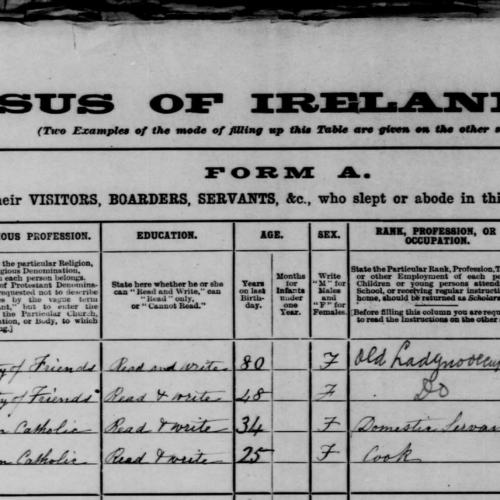 SUS OF IRELAN
(Two Examples of the mode of filling up this Table are given on the other s
FORM A.
eir VISITORS, BOARDERS, SERVANTS, &c., who slept or abode in thi
OUS PROFESSION. EDUCATION. AGE. SEX. RANK, PROFESSION, OR OCCUPATION.
the particular Religion,
gious Denomination,
each person belongs.
of Protestant Denomina-
requested not to describe
es by the vague term
ant," but to enter the
the Particular Church,
ation, or Body, to which
ng.]
State here whether he or she
can "Read and Write," can
"Read" only,
or "Cannot Read."
Years
on last
Birth-
day.
Months
for
Infants
under
one
Year.
Write
"M" for
Males
and
"F" for
Females.
State the Particular Rank, Profession, T
or other Employment of each pe
Children or young persons attend
School, or receiving regular instructi
home, should be returned as Scholar
[Before filling this column you are requ
to read the Instructions on the other
ty of Friends Read and write 80 F Old Lady no occup
ty of Friends Read & write 48 F Do
n Catholic Read & write 34 F Domestic Serva
n Catholic Read & write 25 F Cook